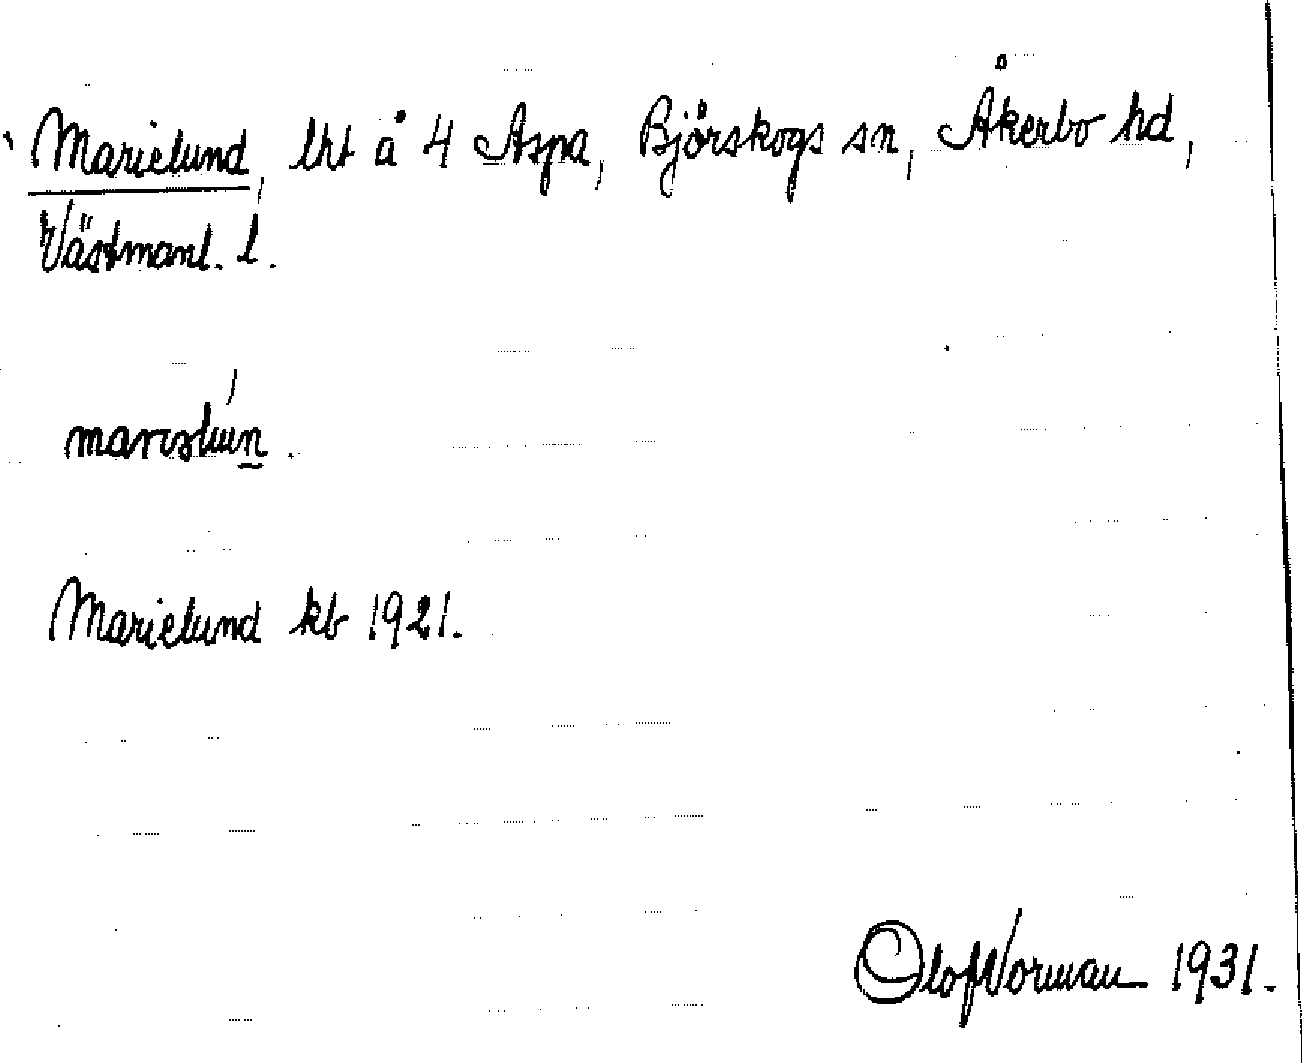 Marielund, lht å 4 Aspa, Björskogs sn, Åkerbo hd,
Västmanl. l.
Marielund kb 1921.
Olof Norman 1931.